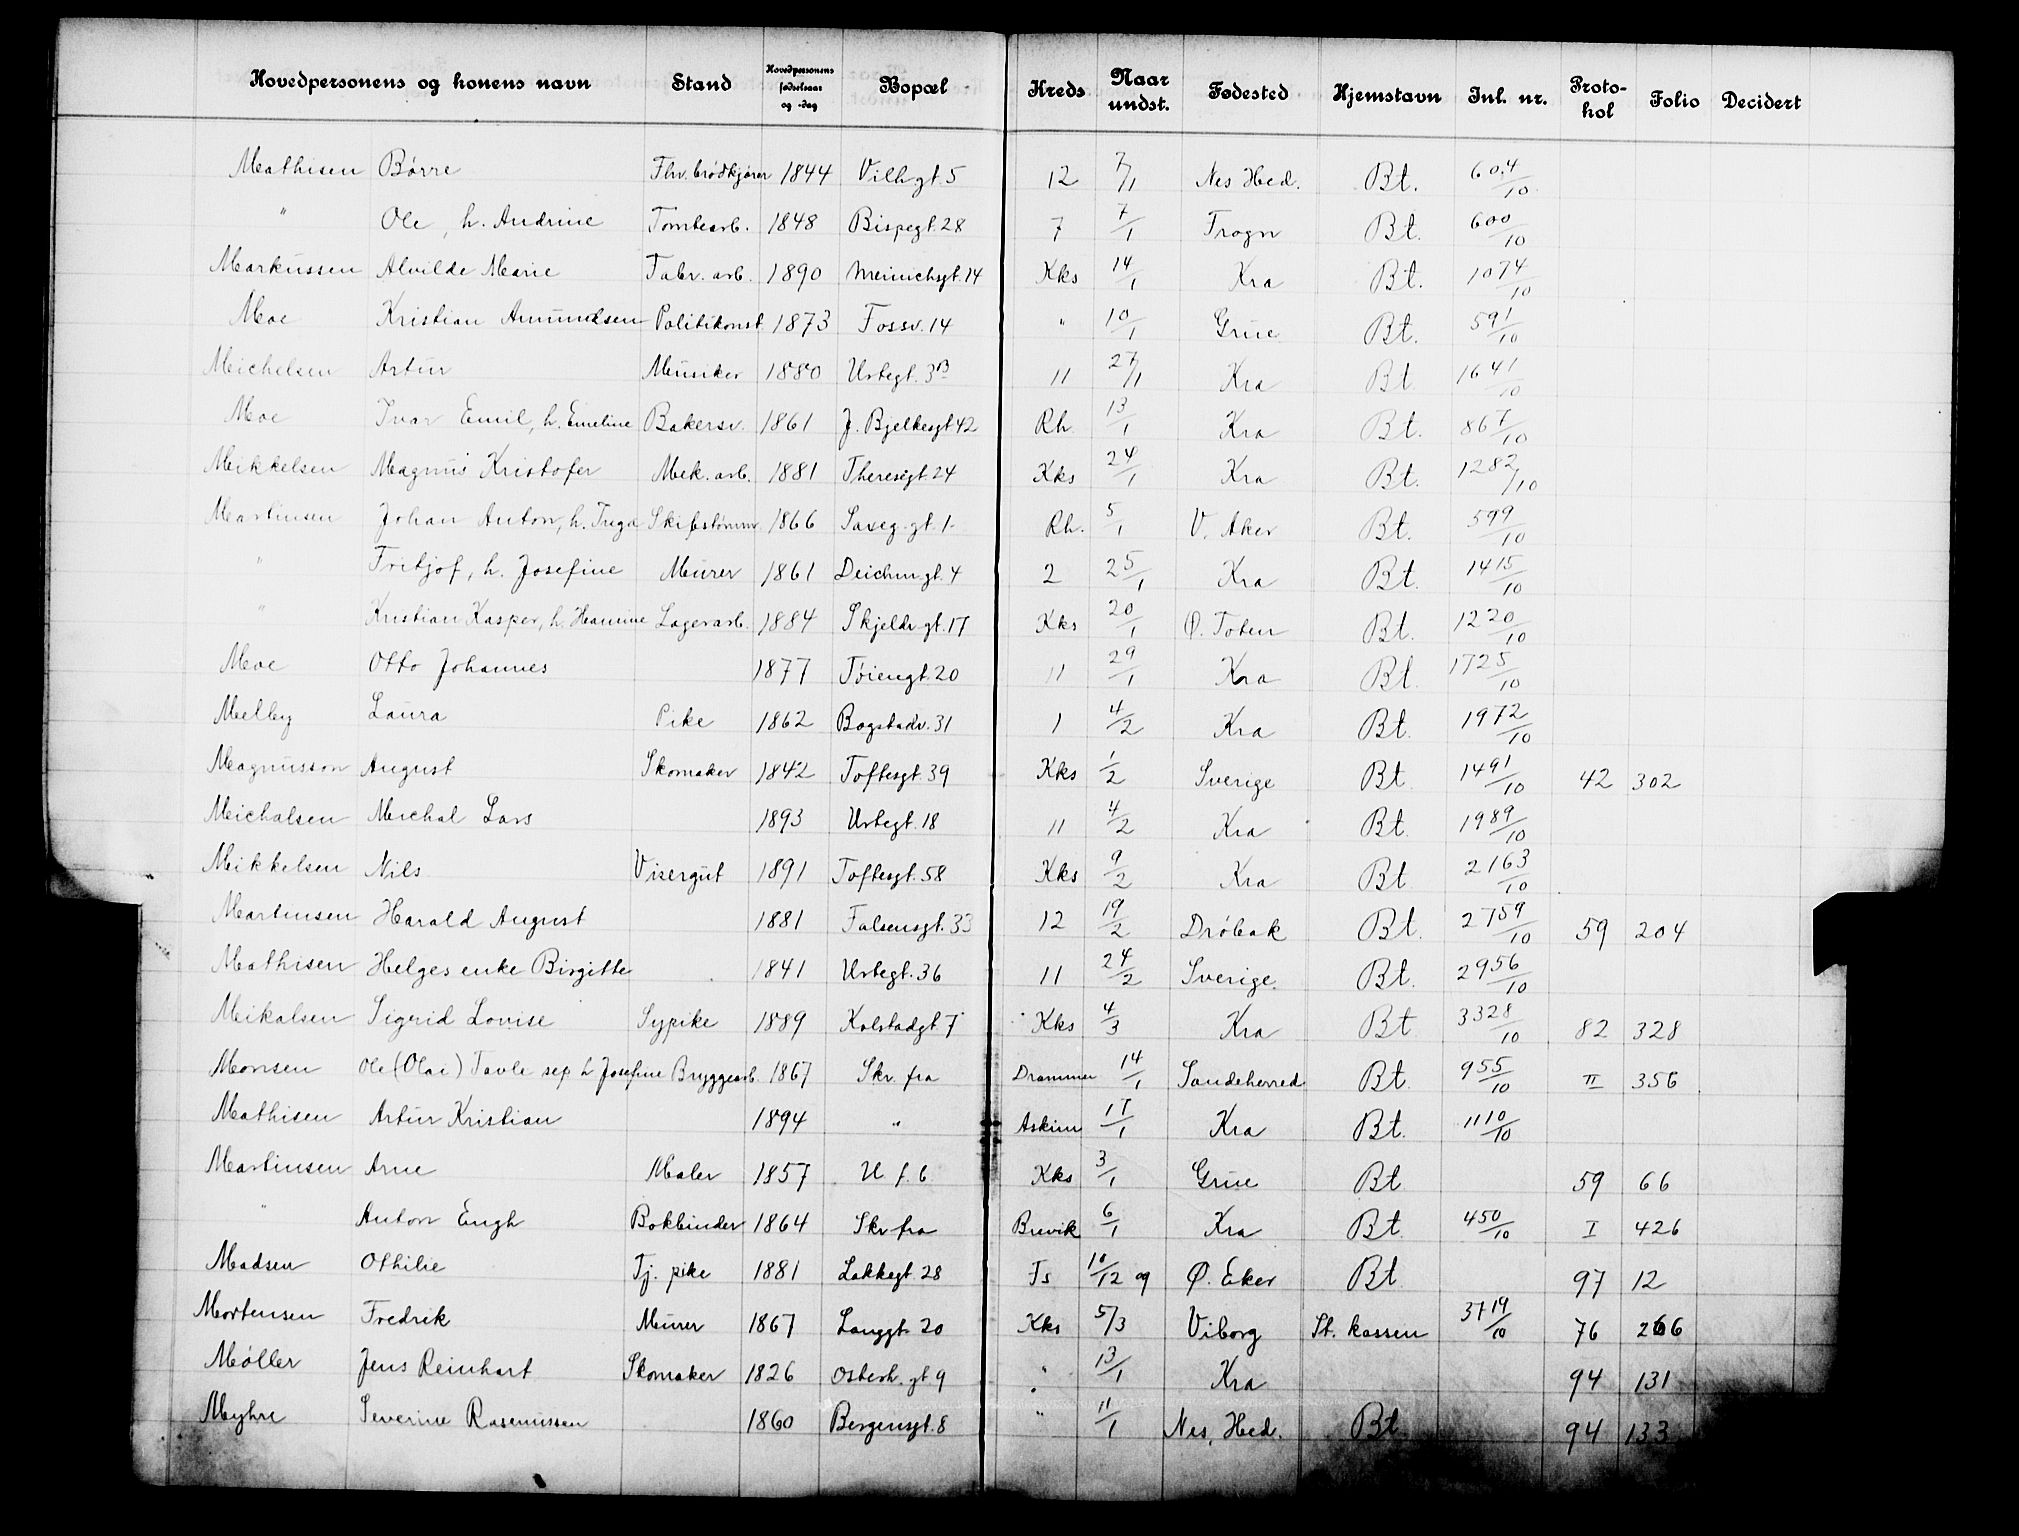 Hovedpersonens og konens navn Stand Hovedpersonens fødselsaar og -dag Bopæl Kreds Naar undst. Fødested Hjemstavn Inl. nr. Protokol Folio Decidert
Mathisen Børre Fhv. brødkjører 1844 Vilh.gt. 5 12 7/1 Nes Hed. Bt. 604/10
" Ole, h. Andrine Tomtearb. 1848 Bispegt. 28 7 7/1 Frogn Bt. 600/10
Markussen Alvilde Marie Fabr. arb. 1890 Meinichsgt. 14 Kks 14/1 Kra Bt. 1074/10
Moe Kristian Amundsen Politikonst. 1873 Fossv. 14 " 10/1 Grue Bt. 591/10
Michelsen Artur Musiker 1880 Urtegt. 3B 11 27/1 Kra Bt 1641/10
Moe Ivar Emil, h. Emeline Bakersv. 1861 J. Bjelkesgt 42 Rh. 13/1 Kra Bt. 867/10
Mikkelsen Magnus Kristofer Mek. arb. 1881 Theresegt. 24 Kks 24/1 Kra Bt. 1282/10
Martinsen Johan Anton, h. Inga Skibstømm. 1866 Saxeg.gt. 1 Rh. 5/1 V. Aker Bt. 599/10
" Fritjof, h. Josefine Murer 1861 Deichm.gt. 4 2 25/1 Kra Bt. 1415/10
" Kristian Kasper, h. Hannine Lagerarb. 1884 Skjeldr.gt. 17 Kks 20/1 Ø. Toten Bt. 1220/10
Moe Otto Johannes 1877 Tøiengt. 20 11 29/1 Kra Bt. 1725/10
Melby Laura Pike 1862 Bogstadv. 31 1 4/2 Kra Bt. 1972/10
Magnusson August Skomaker 1842 Toftesgt. 39 Kks 1/2 Sverige Bt. 1491/10 42 302
Michalsen Michal Lars 1893 Urtegt. 18 11 4/2 Kra Bt. 1989/10
Mikkelsen Nils Visergut 1891 Toftesgt. 58 Kks 9/2 Kra Bt 2163/10
Martinsen Harald August 1881 Falsensgt. 33 12 19/2 Drøbak Bt. 2759/10 59 204
Mathisen Helges enke Birgitte 1841 Urtegt. 36 11 24/2 Sverige Bt. 2956/10
Mikalsen Sigrid Lovise Sypike 1889 Kolstadgt 7 Kks 4/3 Kra Bt 3328/10 82 328
Monsen Ole (Olai) Tavle sep. h Josefine Bryggearb. 1867 Skr. fra Drammen 14/1 Sandeherred Bt. 955/10 II 356
Mathisen Artur Kristian 1894 " Askim 17/1 Kra Bt. 1110/10
Martinsen Arne Maler 1857 U f. 6 Kks 3/1 Grue Bt 59 66
" Anton Engh Bokbinder 1864 Skr fra Brevik 6/1 Kra Bt. 450/10 I 426
Madsen Othilie Tj. pike 1881 Lakkegt. 28 Fs 10/12 09 Ø. Eker Bt 97 12
Mortensen Fredrik Murer 1867 Langgt. 20 Kks 5/3 Viborg St. kassen 3719/10 76 266
Møller Jens Reinhart Skomaker 1826 Osterh.gt 9 " 13/1 Kra 94 131
Myhre Severine Rasmussen 1860 Bergensgt. 8 " 11/1 Nes, Hed. Bt. 94 133